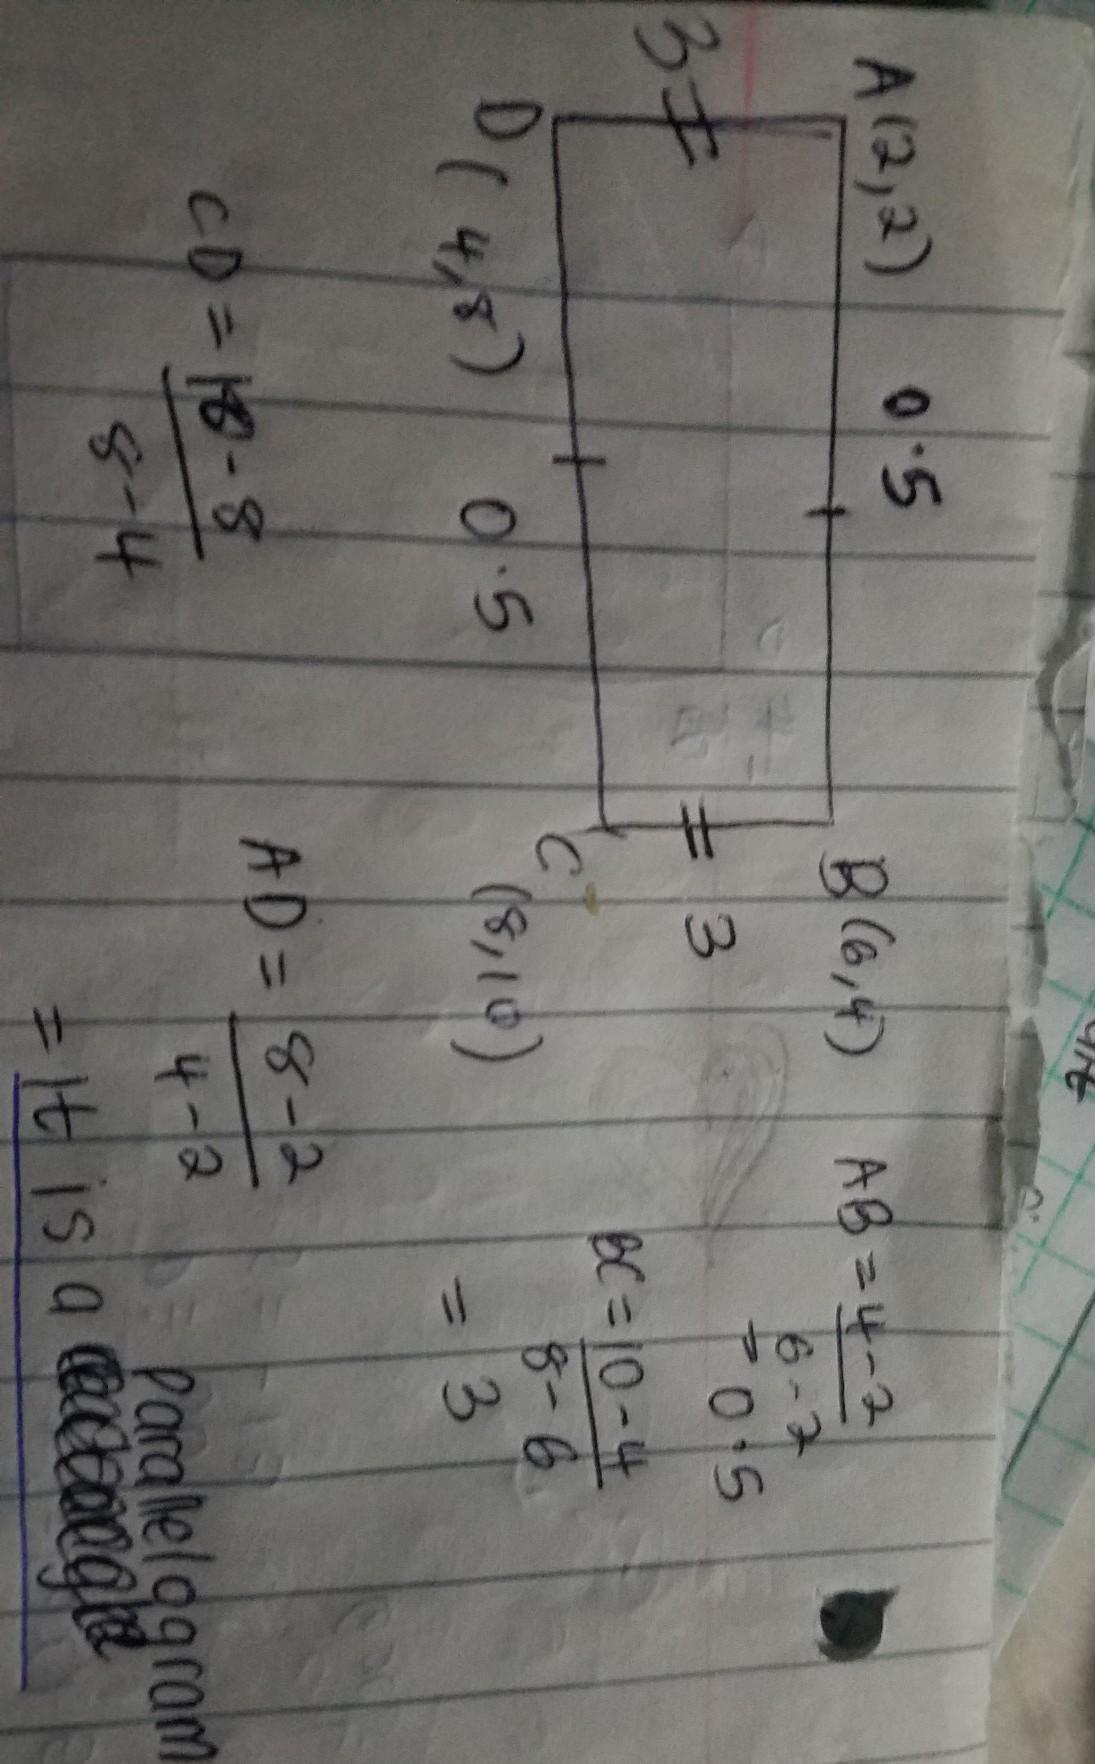 A(2,2) 0.5 B(6,4)
3 3
D(4,8) 0.5 C(8,10)
AB = 4-2
6-2
= 0.5
BC = 10-4
8-6
= 3
CD = 10-8
8-4
AD = 8-2
4-2
parallelogram
= It is a